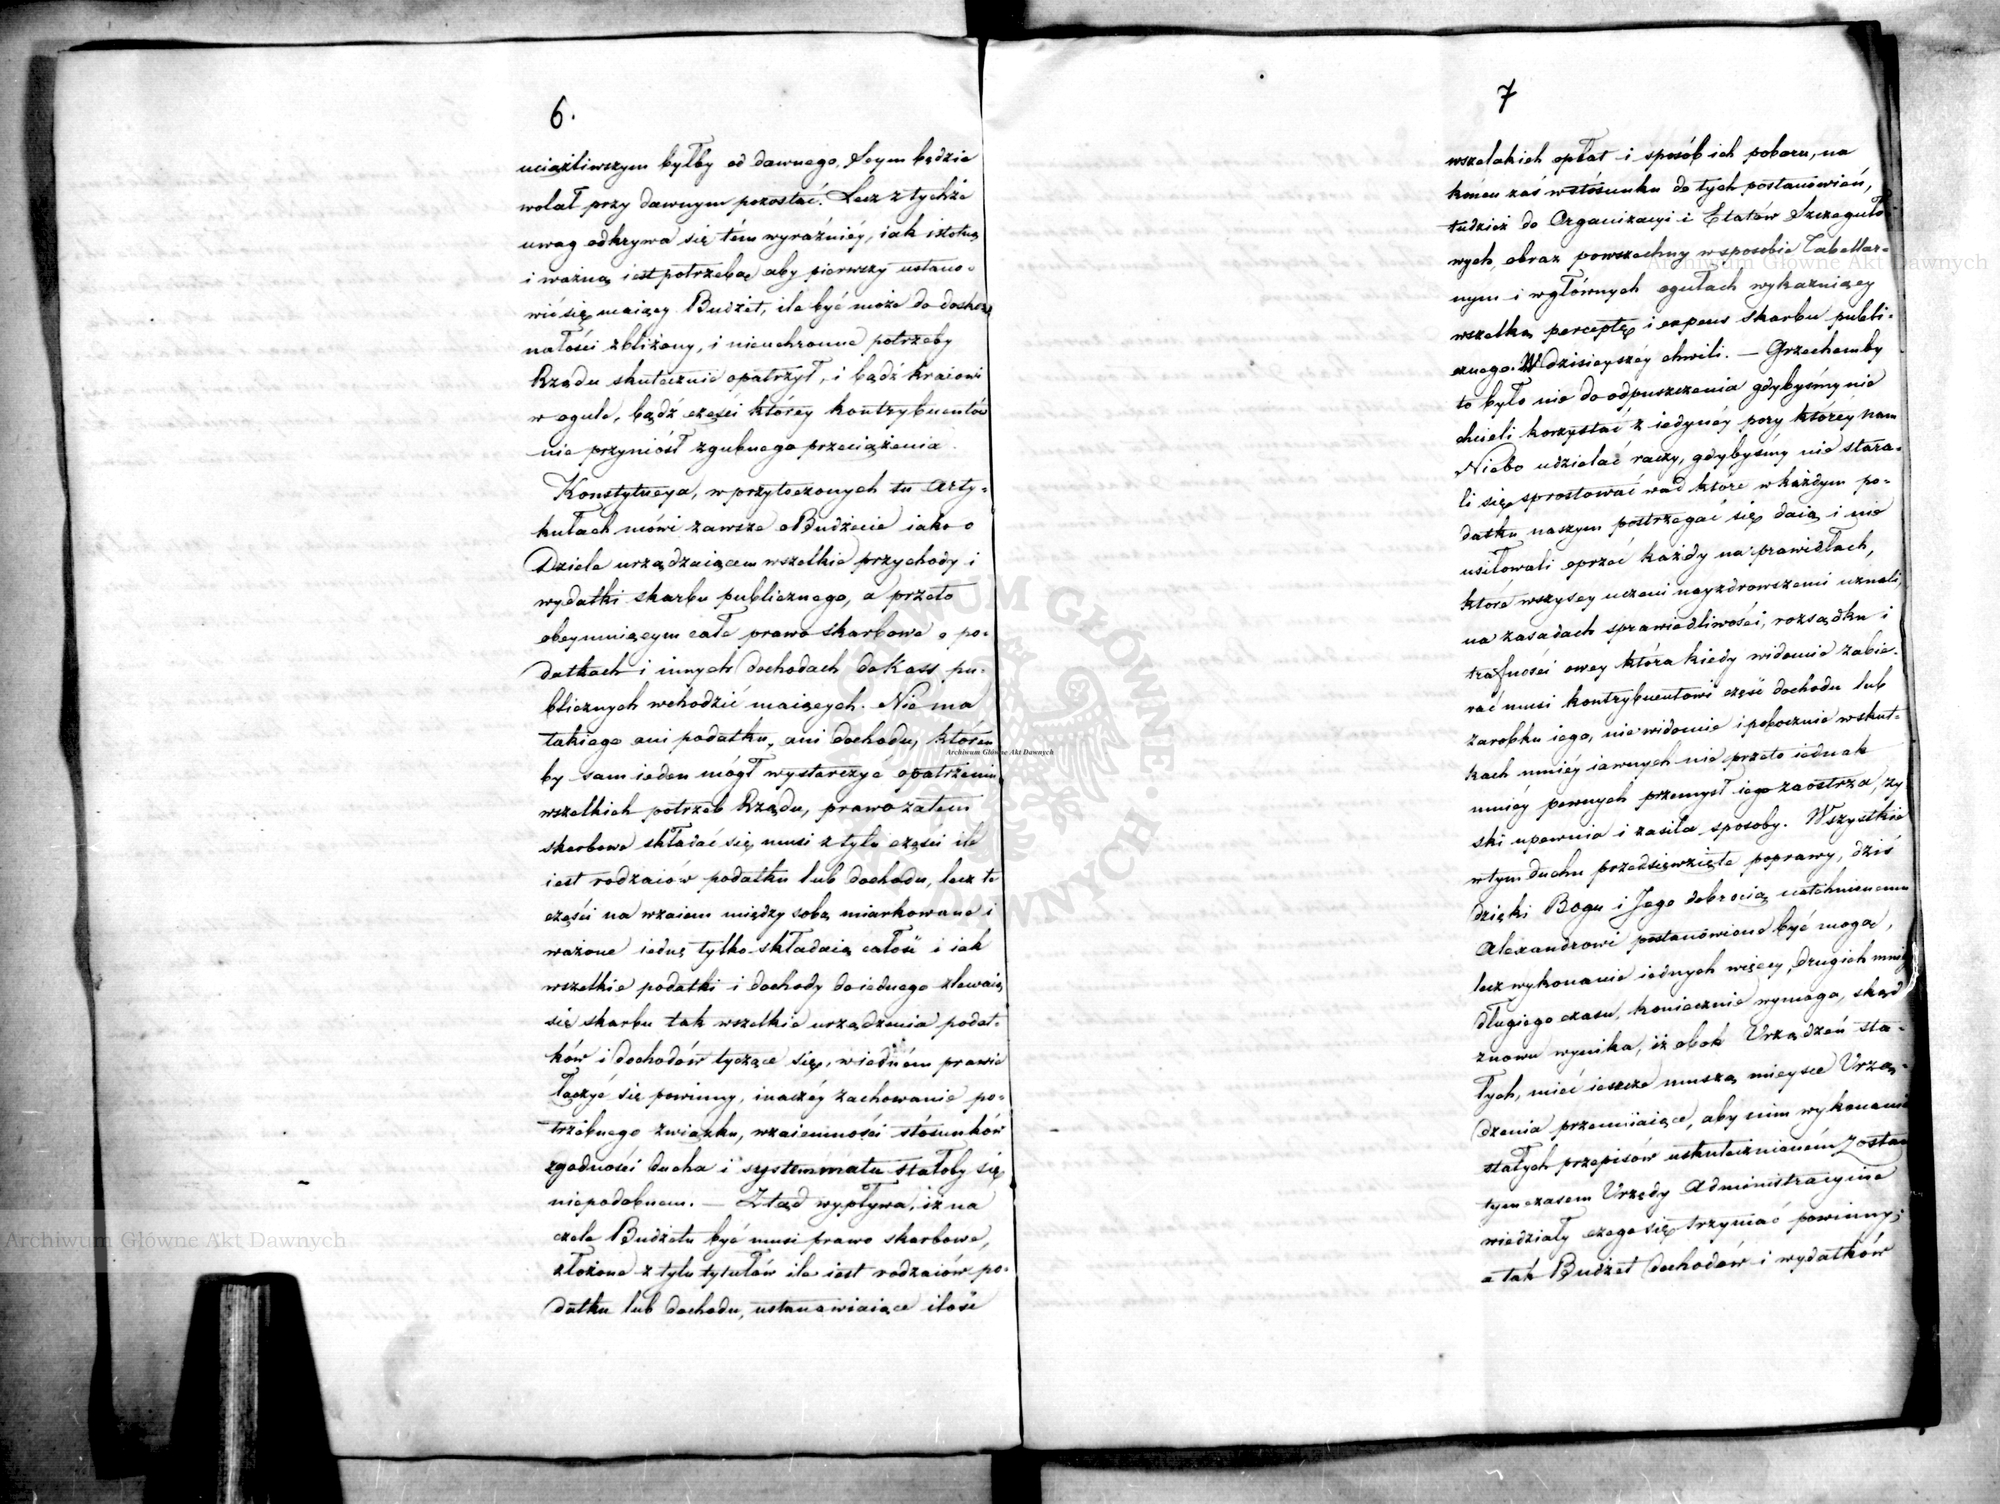 6.
uciążliwszym byłby od dawnego, Seym będzie
wolał przy dawnym pozostać. Lecz z tychże
uwag odkrywa się tém wyraźniéy, iak istotną
i ważną iest potrzebą aby pierwszy ustano-
wić się maiący Budżet, ile być może do dosko-
nałości zbliżony, i nieuchronne potrzeby
Rządu skutecznie opatrzył, i bądź kraiowi
w ogule, bądź części któréy kontrybuentów
nie przyniósł zgubnego przeciążenia.
Konstytucya, w przytoczonych tu arty-
kułach mówi zawsze o Budżecie iako o
Dziele urządzaiącem wszelkie przychody i
wydatki skarbu publicznego, a przeto
obeymuiącym całe prawo skarbowe o po-
datkach i innych dochodach do Kass pu-
blicznych wchodzić maiących. Nie ma
takiego ani podatku, ani dochodu, któren
by sam ieden mógł wystarczyć opatrzeniu
wszelkich potrzeb Rządu, prawo zatem
skarbowe składać się musi z tylu części ile
iest rodzaiów podatku lub dochodu, lecz te
części na wzaiem między sobą miarkowane i
ważone iednę tylko składaią całość i iak
wszelkie podatki i dochody do iednego zlewaią
się skarbu tak wszelkie urządzenia podat-
ków i dochodów tyczące się, w iedném prawie
łączyć się powinny, inaczéy zachowanie po-
trzebnego związku, wzaiemności stósunków
zgodności ducha i systemmatu stałoby się
niepodobnem. — Ztąd wypływa, iż na
czele Budżetu być musi prawo skarbowe,
złożone z tylu tytułów ile iest rodzaiów po-
datku lub dochodu, ustanawiaiące ilość
7
wszelakich opłat i sposób ich poboru, na
końcu zaś w stósunku do tych postanowień,
tudzież do Organizacyi i Etatów Szczeguło-
wych, obraz powszechny w sposobie Tabellar-
nym i w głównych ogułach wykazuiący
wszelką perceptę i expens skarbu publi-
cznego. W dzisieyszéy chwili. — Grzechemby
to było nie do odpuszczenia gdybyśmy nie
chcieli korzystać z iedynéy pory któréy nam
Niebo udzielać raczy, gdybyśmy nie stara-
li się sprostować wad które w każdym po-
datku naszym postrzegać się daią i nie
usiłowali oprzeć każdy na prawidłach,
które wszyscy uczeni nayzdrowszemi uznali,
na zasadach sprawiedliwości, rozsądku i
trafności owey która kiedy widomie zabie-
rać musi kontrybuentowi część dochodu lub
zarobku iego, niewidomie i pobocznie w skut-
kach mniéy iawnych nie przeto iednak
mniéy pewnych przemysł iego zaostrza, zy-
ski upewnia i zasila sposoby. Wszystkie
w tym duchu przedsięwzięte poprawy, dziś
dzięki Bogu i Jego dobrocią natchnionemu
Alexandrowi postanówione być mogą,
lecz wykonanie iednych więcey, drugich mniéy
długiego czasu, koniecznie wymaga, skąd
znowu wynika, iż obok Urządzeń sta-
łych, mieć ieszcze muszą mieysce Urzą-
dzenia przemiiaiące, aby nim wykonanie
stałych przepisów uskutecznieném zostan
tymczasem Urzędy Administracyine
wiedziały czego się trzymać powinny;
a tak Budżet dochodów i wydatków
Archiwum Główne Akt Dawnych
Archiwum Główne Akt Dawnych
Archiwum Główne Akt Dawnych
ARCHIWUM GŁÓWNE AKT DAWNYCH